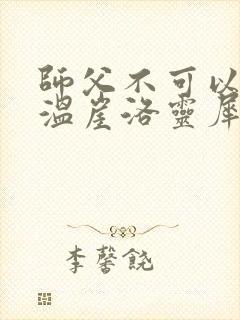 師父不可以
溫崖洛靈犀
李馨饒